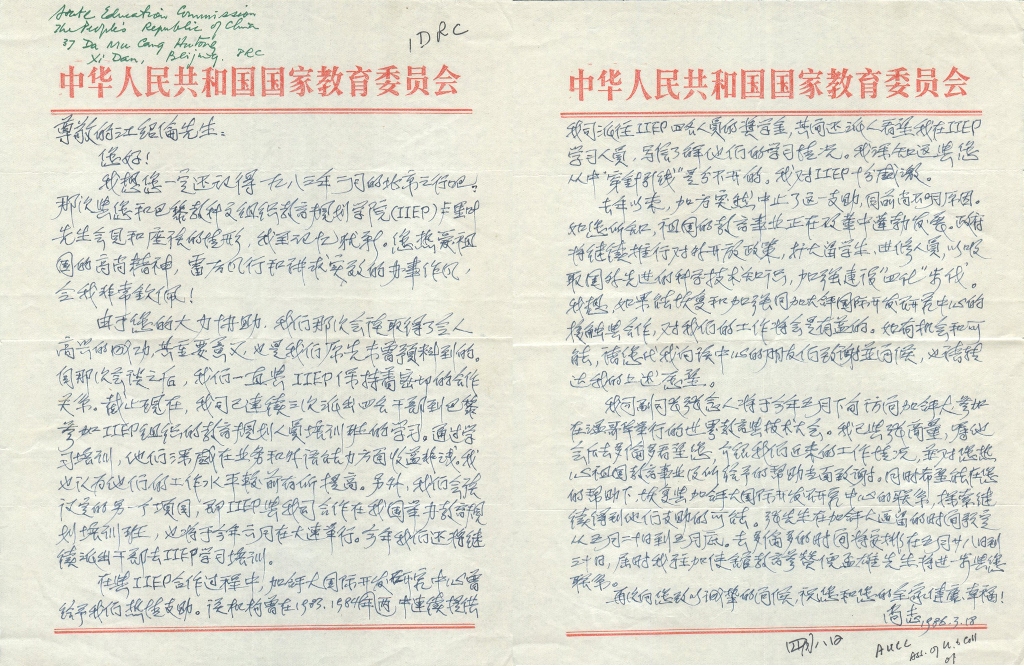 State Education Commission
The People's Republic of China
37 Da Mu Cang Hutong
Xi Dan, Beijing. PRC
IDRC
中华人民共和国国家教育委员会
尊敬的江绍伦先生：
您好！
我想您一定还记得一九八三年二月的北京之行吧，
那次您和巴黎教科文组织教育规划学院(IIEP)卡里叶
先生会见和座谈的情形，我至今记忆犹新。您热爱祖
国的高尚精神，雷厉风行和讲求实效的办事作风，
令我非常钦佩！
由于您的大力协助，我们那次会谈取得了令人
高兴的成功，其重要意义，也是我们原先未曾预料到的。
自那次会谈之后，我们一直与IIEP保持着密切的合作
关系。截止现在，我司已连续三次派出四名干部到巴黎
参加IIEP组织的教育规划人员培训班的学习。通过学
习培训，他们深感在业务和外语能力方面收益非浅。我
也认为他们的工作水平较前有所提高。另外，我们会谈
议定的另一个项目，即IIEP与我司合作在我国举办教育规
划培训班，也将于今年六月在大连举行。今年我们还将继
续派出干部去IIEP学习培训。
在与IIEP合作过程中，加拿大国际开发研究中心曾
给予我们热情支助。该机构曾在1983、1984年两年中连续提供
中华人民共和国国家教育委员会
我司派往IIEP四名人员的奖学金，其间还派人看望我在IIEP
学习人员，写信了解他们的学习情况。我深知这与您
从中"穿针引线"是分不开的。我对IIEP十分感激。
去年以来，加方突然中止了这一支助，目前尚不明原因。
如您所知，祖国的教育事业正在改革中蓬勃发展。政府
将继续推行对外开放政策，扩大留学生、进修人员，以吸
取国外先进的科学技术和知识，加强建设"四化"步伐。
我想，如果能恢复和加强同加拿大国际开发研究中心的
接触与合作，对我们的工作将会是有益的。如有机会和可
能，请您代我向该中心的朋友们致谢并问候，也请转
达我的上述愿望。
我司副司长张志人将于今年五月下旬访问加拿大参加
在温哥华举行的世界教育与技术大会。我已与张商量，看他
会后去多伦多看望您，介绍我们近来的工作情况，并对您热
心祖国教育事业及所给予的帮助当面致谢。同时希望能在您
的帮助下，恢复与加拿大国际开发研究中心的联系，探索继
续得到他们支助的可能。张先生在加拿大逗留的时间预定
从五月二十日到五月底。去多伦多的时间将安排在五月廿八日到
三十日，届时我驻加使馆教育参赞便孟雄先生将进一步与您
联系。
再次向您致以诚挚的问候，祝您和您的全家健康、幸福！
尚志 1986.3.18
四月八日
AUCC
Ass. of U. & Coll
of